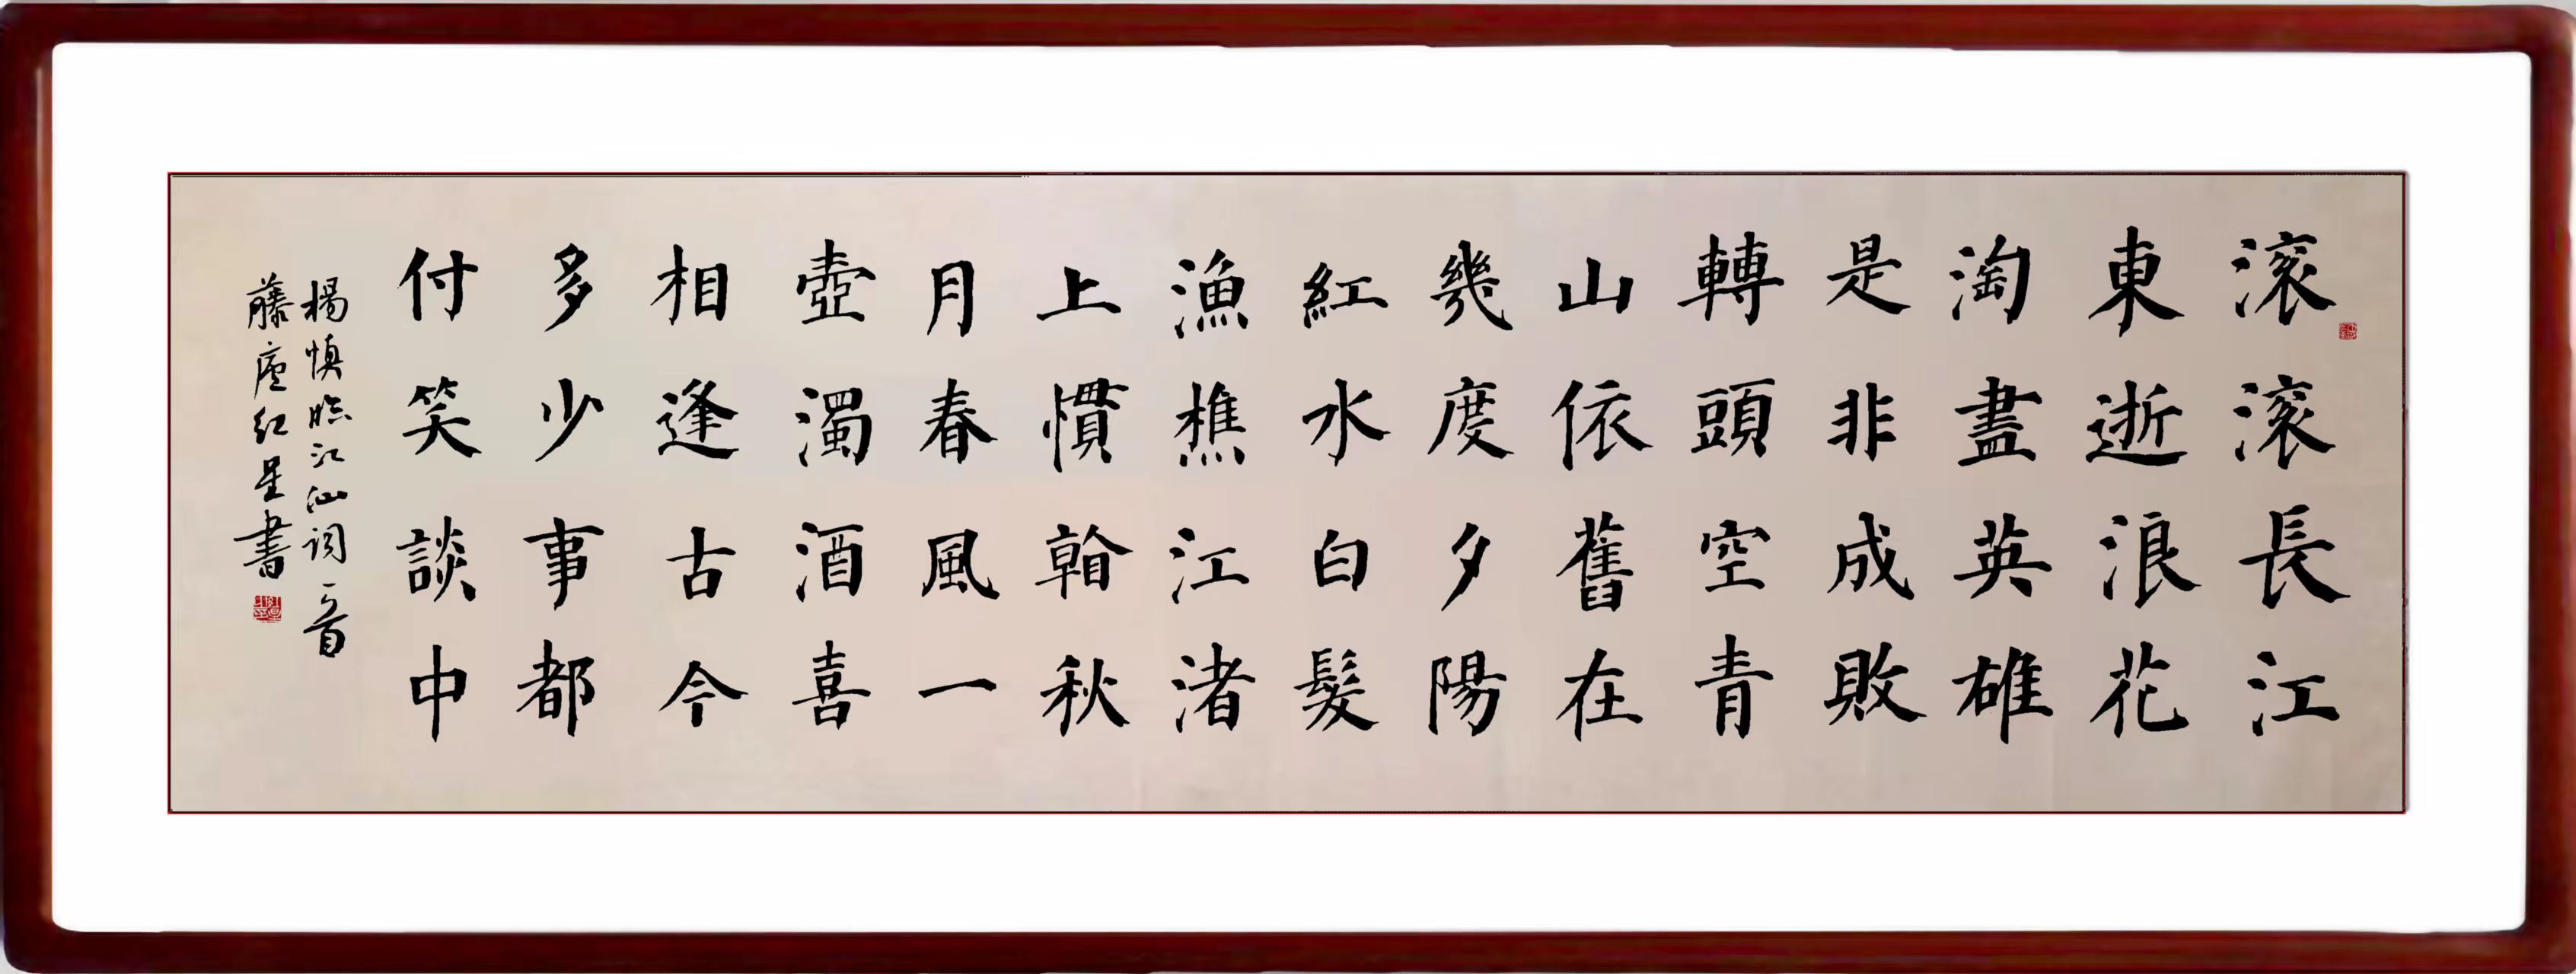 滚滚長江
東逝浪花
淘盡英雄
是非成敗
轉頭空青
山依舊在
幾度夕陽
紅水白髮
漁樵江渚
上慣秋
月春風一
壺濁酒喜
相逢古今
多少事都
付笑談中
楊慎临江仙词一首
藤紅星書